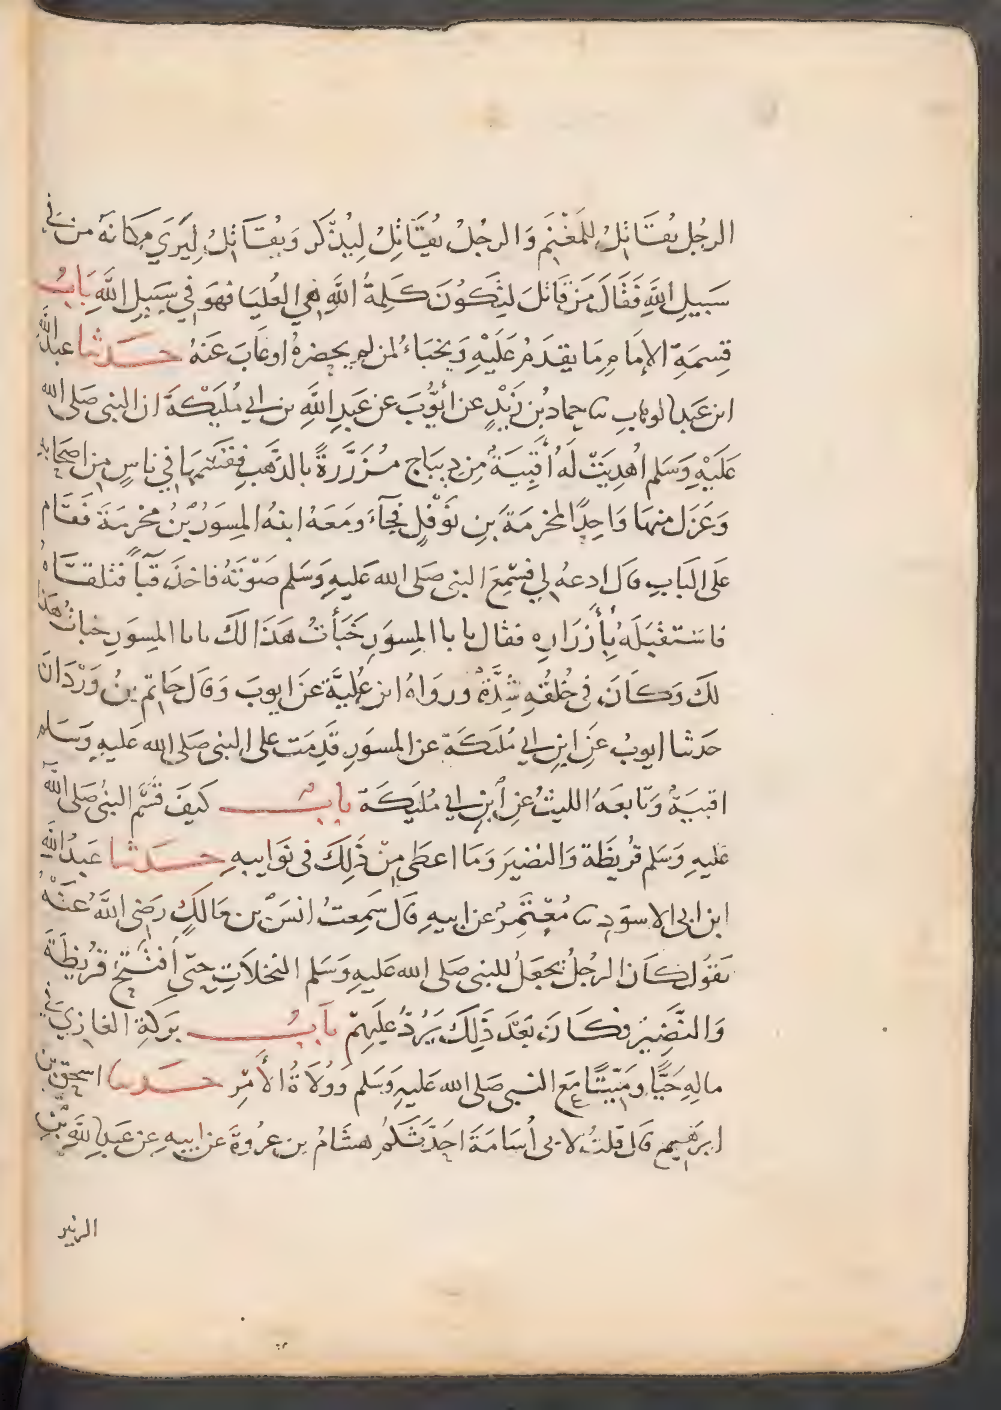 الرجُل يُقَاتِلُ لِلمَغْنَمِ وَالرجُلُ يُقَاتِلُ لِيُذْكَر وَيُقَاتِلُ لِيُرَي مَكَانَهُ من في
سَبِيلِ اللَّهِ فَقَالَ مَن قَاتَلَ لِتَكُونَ كَلِمَةُ اللَّهِ هي العُليَا فهوَ في سَبِيلِ اللَّهِ بَابُ
قِسمَةِ الإمَامِ مَا يقدَمُ عَلَيْهِ وَيَخبَاءُ لمن لم يحضرهُ اوغابَ عَنهُ حدثنا عبدُ اللَّه
ابن عَبد الوهابِ نا حماد بُن زَيْدٍ عن أيُّوبَ عن عَبدِ اللَّهِ بن ابي مُلَيْكَةَ ان النبى صَلى الله
عَلَيْهِ وَسَلم اُهْدِيَتْ لَهُ أقْبِيَةٌ مِن دِيبَاجٍ مُزَرَّرةً بالذهَبِ فقسَمَهَا في نَاسٍ مِن اصحَابِهِ
وَعَزَل منهَا وَاحِدًا لمخرمَةَ بنِ نَوْفَلٍ فجآءَ ومَعَهُ ابنهُ المِسوَرُ بْنُ مخرمَةَ فَقَام
عَلى البَابِ قال ادعهُ لي فسَمِعَ النبى صَلى الله عَليهِ وَسَلم صَوْتَهُ فاخذَ قبآً فتلقاهُ
فاستقبَلَهُ بِأَزرَارِهِ فقال يا با المِسوَرِ خَبَأتُ هَذَا لكَ يابا المِسوَرِ خباتُ هَذا
لكَ وَكَانَ فى خُلقُهِ شِدَّةٌ وروَاهُ ابن عُليَّةَ عن ايوبَ وَقال حَاتِم بنُ وَرْدَانَ
حَدثنا ايوبُ عَنِ ابنِ ابي مُلَيكَةَ عن المِسوَرِ قَدِمَت على النبى صَلى الله عَليهِ وَسَلم
اقبيَةٌ وَتَابعَهُ الليثُ عنِ ابنِ ابي مُليَكَةَ بابُ كيفَ قسَّم النبىُ صَلى اللَّه
عَليهِ وَسَلم قُريظَة وَالنضيَر وَمَا اعطى مِن ذَلِكَ فى نَوَايبهِ حدثنا عَبدُ اللَّهِ
ابن ابى الاسوَدِ نا مُعْتَمِرُ عن ابيهِ قال سَمِعتُ انسَ بْن مَالكٍ رَضى اللَّهُ عَنْهُ
يَقُولُ كَانَ الرجُلُ يَجعَلُ للنبى صَلى الله عَليهِ وَسَلم النخلاَتِ حتى أفتَتَحَ قُريظَةَ
وَالنَّضِيَر فكَانَ بَعْدَ ذَلِكَ يَرُدُّ عَلَيهِمْ بَابُ بَرَكَةِ الغَازِي في
مالِهِ حَيًّا وَمَيّتًا مَع النبى صَلى الله عَليهِ وَسَلم وَوُلاَةُ الأَمْرِ حدثنا اسحق بن
ابرهيم قال قلتُ لابى أُسَامَةَ احَدَّثَكم هشَامُ بن عرُوَةَ عن ابيهِ عن عَبدِ اللَّهِ بْنِ
الزبير